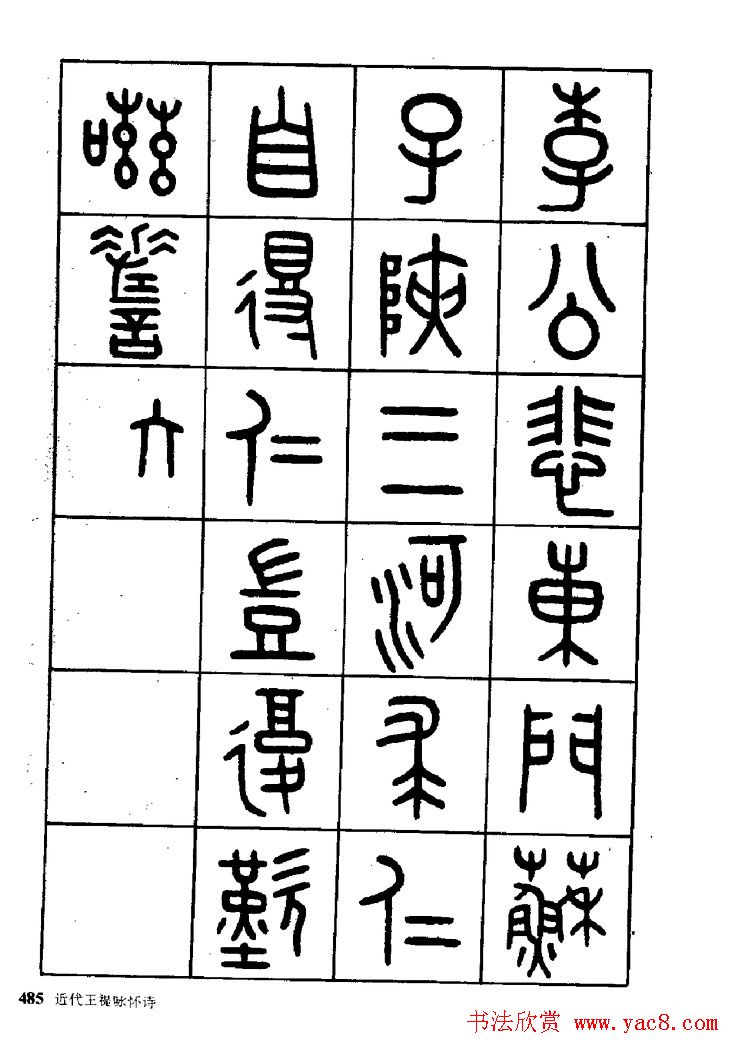 李公悲東門蘇
子陝三河求仁
自得仁豈復歎
嗞嗟六
485 近代王禔咏怀诗
书法欣赏 www.yac8.com